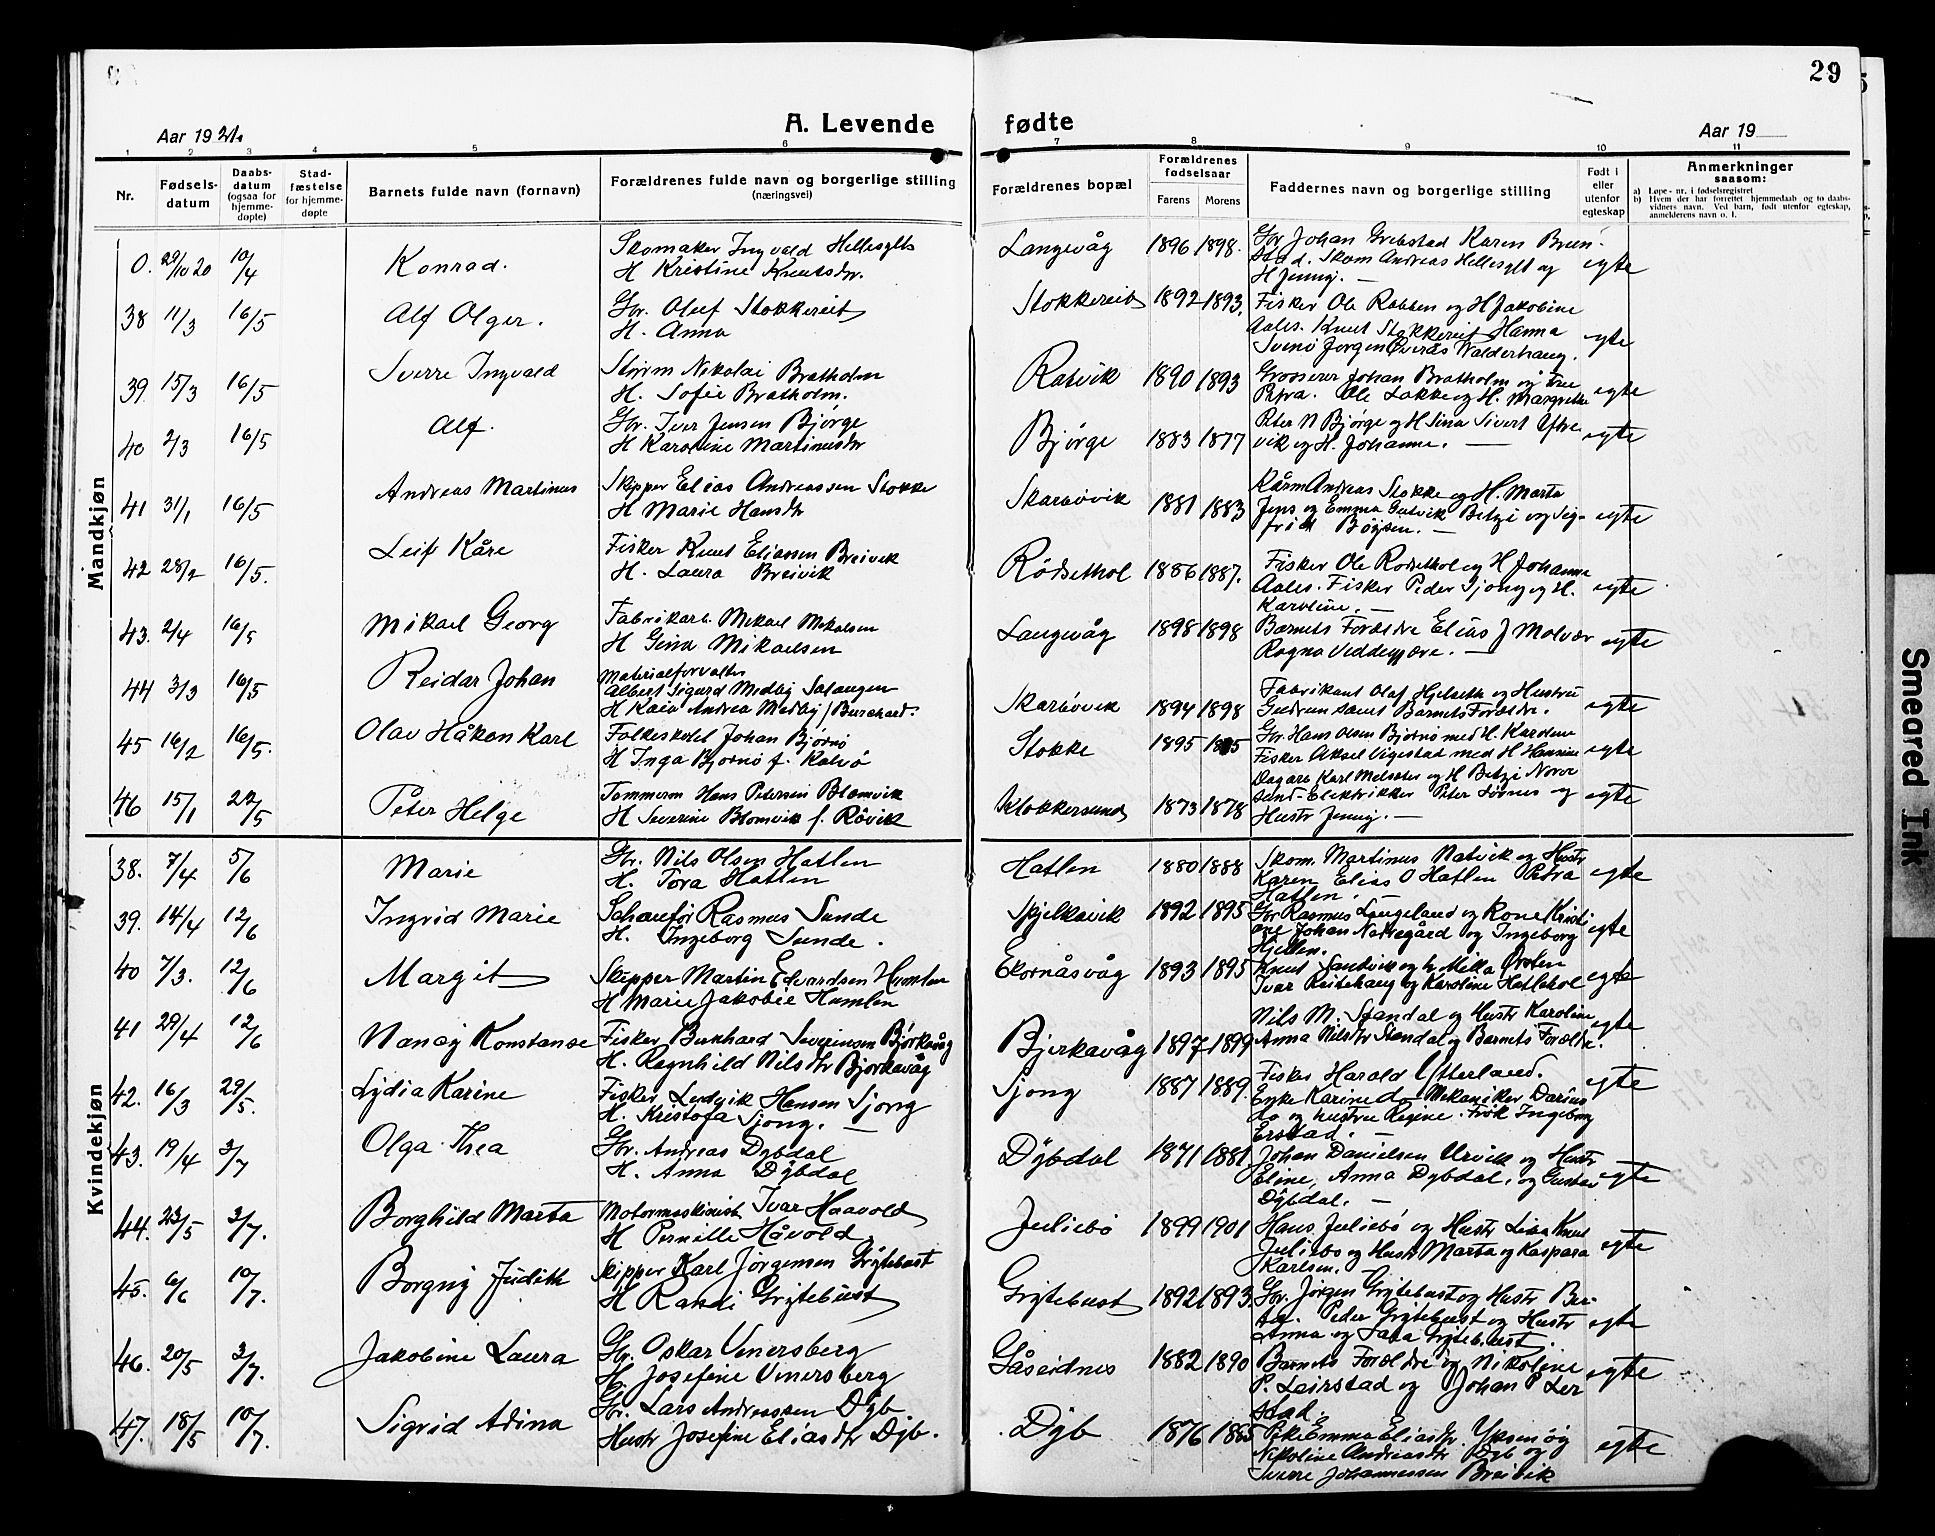 29
Aar 1921.
A. Levende fødte
Aar 19
1 2 3 4 5 6 7 8 9 10 11
Nr.
Fødsels-datum
Daabs-datum (ogsaa for hjemme-døpte)
Stad-fæstelse for hjemme-døpte
Barnets fulde navn (fornavn)
Forældrenes fulde navn og borgerlige stilling (næringsvei)
Forældrenes bopæl
Forældrenes fødselsaar
Farens Morens
Faddernes navn og borgerlige stilling
Født i eller utenfor egteskap
Anmerkninger saasom:
a) Løpe-nr. i fødselsregistret
b) Hvem der har forrettet hjemmedaab og to daabs-vidners navn. Ved barn, født utenfor egteskap, anmelderens navn o. l.
Mandkjøn
0. 29/10 20 10/4 Konrad. Skomaker Ingvald Hellesylt Langevåg 1896 1898. Gbr Johan Grebstad Karen Brun-
H Kristine Knutsdr. stad. Skom Andreas Hellesylt og egte
H Jenny. —
38 11/3 16/5 Alf Olger. Gbr. Oluf Stokkereit Stokkereit 1892 1893. Fisker Ole Rabben og H Jakobine
H. Anna Aales. Knut Stokkereit Hanna egte
Svenø Jørgen Øverås Walderhaug.
39. 15/3 16/5 Sverre Ingvald Styrm Nikolai Bratholm Ratvik 1890 1893 Grosserer Johan Bratholm og Frue
H. Sofie Bratholm. Petra. Ole Løkke og H. Margrethe egte
40 2/3 16/5 Alf. Gbr. Iver Jensen Bjørge Bjørge 1883 1877 Peter N Bjørge og H Sina Sivert
H Karoline Martinusdr vik og H. Johanne. — egte
41 31/1 16/5 Andreas Martinus Skipper Elias Andreassen Stokke Skarbøvik 1881 1883 Andreas Stokke og H. Marta
H Marie Hansdr Jens og Emma Gutvik Betzi og Sig- egte
frid Bøysen. —
42 28/2 16/5. Leif Kåre Fisker Knut Eliassen Breivik Rødsethol 1886 1887. Fisker Ole Rødsethol og H Johanne
H. Laura Breivik Aales. Fisker Peder Sjong og H. egte
Karoline. —
43. 2/4 16/5 Mikael Georg Fabrikarb. Mikael Mikalsen Langevåg 1898 1898 Barnets Forældre Elias J Molvær egte
H Gina Mikaelsen Ragna Veddegjærde. —
44 3/3 16/5 Reidar Johan Materialforvalter
Albert Sigurd Medby Salangen Skarbøvik 1894 1898 Fabrikant Olaf Hjelseth og Hustru
H Kaia Andrea Medby / Burchard. Gudrun samt Barnets Forældre. egte
45 16/2 16/5. Olav Håkon Karl Folkeskolel Johan Bjørnø Stokke 1895 1895 Gbr. Hans Olsen Bjørnø med H. Karoline
H Inga Bjørnø f. Kalvø Fisker Aksel Vigestad med H Hansine egte
46 15/1 22/5 Peter Helge Tømmerm Hans Petersen Blomvik Klokkersund 1873 1878 Dagarb Karl Melsæter og H Betzi Norve
H Severine Blomvik f. Røvik sund - Elektrikker Peter Sørnes og egte
Hustr Jenny. —
Kvindekjøn
38. 7/4 5/6 Marie Gbr. Nils Olsen Hatlen Hatlen 1880 1888 Skom. Martinus Natvik og Hustr
H. Tora Hatlen Karen Elias O Hatlen Petra egte
Hatlen. —
39. 14/4 12/6 Ingrid Marie Schauför Rasmus Sunde Spjelkavik 1892 1895 Gbr Rasmus Langeland og Kone Kristi
H. Ingeborg Sunde. ane Johan Nakkegård og Ingeborg egte
Hjellen.
40 7/3. 12/6 Margit Skipper Martin Edvardsen Humlen Ekornåsvåg 1893 1895 Knut Sandvik og h. Milla Ørsten
H Marie Jakobie Humlen Ivar Reitehaug og Karoline Hatlehol egte
41 29/4 12/6 Nancy Konstanse Fisker Burkhard Severinsen Bjørkavåg Bjerkavåg 1897 1899 Nils M. Standal og Hustr Karoline egte
H. Ragnhild Nilsdtr Bjørkavåg Anna Nilsdtr Standal og Barnets Forældre.
42. 16/3 29/5. Lydia Karine Fisker Ludvik Hansen Sjong Sjong 1887 1889. Fisker Harald Ytterland. egte
H. Kristofa Sjong. — Enke Karine do - Mekaniker Darius
do og hustru Regine. Frøk Ingeborg
Erstad. —
43. 19/4 3/7 Olga Thea Gbr. Andreas Dybdal Dybdal 1871 1881 Johan Danielsen Urvik og Hustr
H. Anna Dybdal Eline, Anna Dybdal. og Gustav egte
Dybdal. —
44. 23/5 3/7. Borghild Marta Motormaskinist Ivar Haavold Juliebø 1899 1901 Hans Juliebø og Hustr Lisa Knut
H Pernille Håvold Juliebø og Hustr Marta og Kaspara egte
Karlsen.
45. 6/6 10/7. Borgny Judith Skipper Karl Jørgensen Grytebust Grytebust 1892 1893. Gbr. Jørgen Grytebust og Hustr Ber-
H Randi Grytebust Peder Grytebust og Hustr egte
Anna og Grytebust.
46. 20/5 3/7. Jakobine Laura Gbr. Oskar Unersberg Gåseidnes 1882 1890 Barnets Forældre og Nikoline egte
H. Josefine Unersberg P. Leirstad og Johan P Leir
stad.
47. 18/5 10/7. Sigrid Adina Gbr. Lars Andreassen Dyb Dyb 1876 1885 Pike Emma Eliasdtr. Yksnøy
Hustr Josefine Eliasdtr Dyb. Nikoline Andreasdtr Dyb og egte
Sverre Johannessen Breivik
Smeared Ink